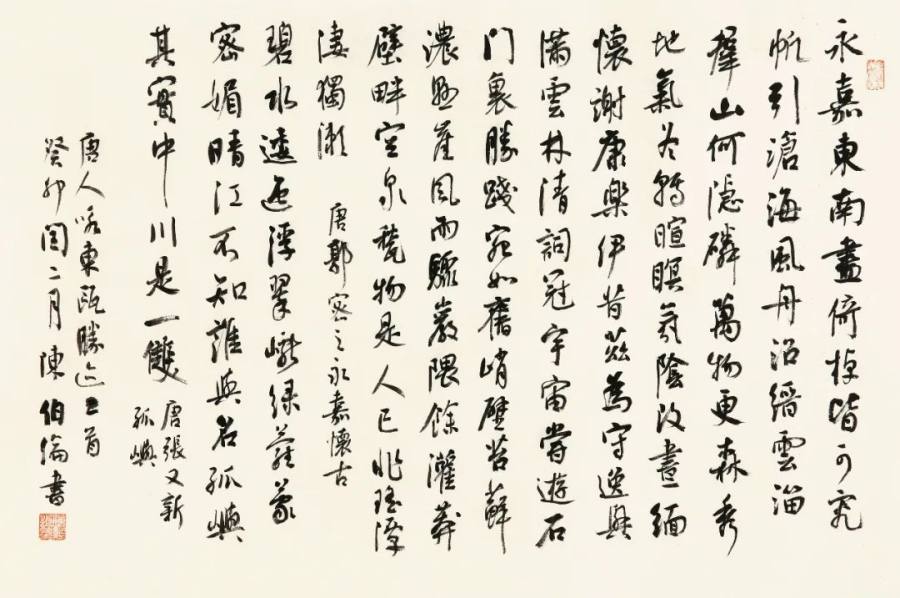 永嘉東南盡倚棹皆可究
帆引滄海風舟沿縉雲溜
羣山何隱磷萬物更森秀
地氣冬轉暄暝氛陰改晝緬
懷謝康樂伊昔茲為守逸興
滿雲林清詞冠宇宙嘗遊石
門裏勝踐宛如舊峭壁苔蘚
濃懸崖風雨驟巖隈餘灌莽
壁畔空泉甃物是人已非瑤潭
淒獨漱 唐郭密之永嘉懷古
碧水逶迤浮翠巘綠蘿蒙
密媚晴江不知誰與名孤嶼
其實中川是一雙 唐張又新
孤嶼
唐人咏東甌勝迹二首
癸卯閏二月陳伯倫書